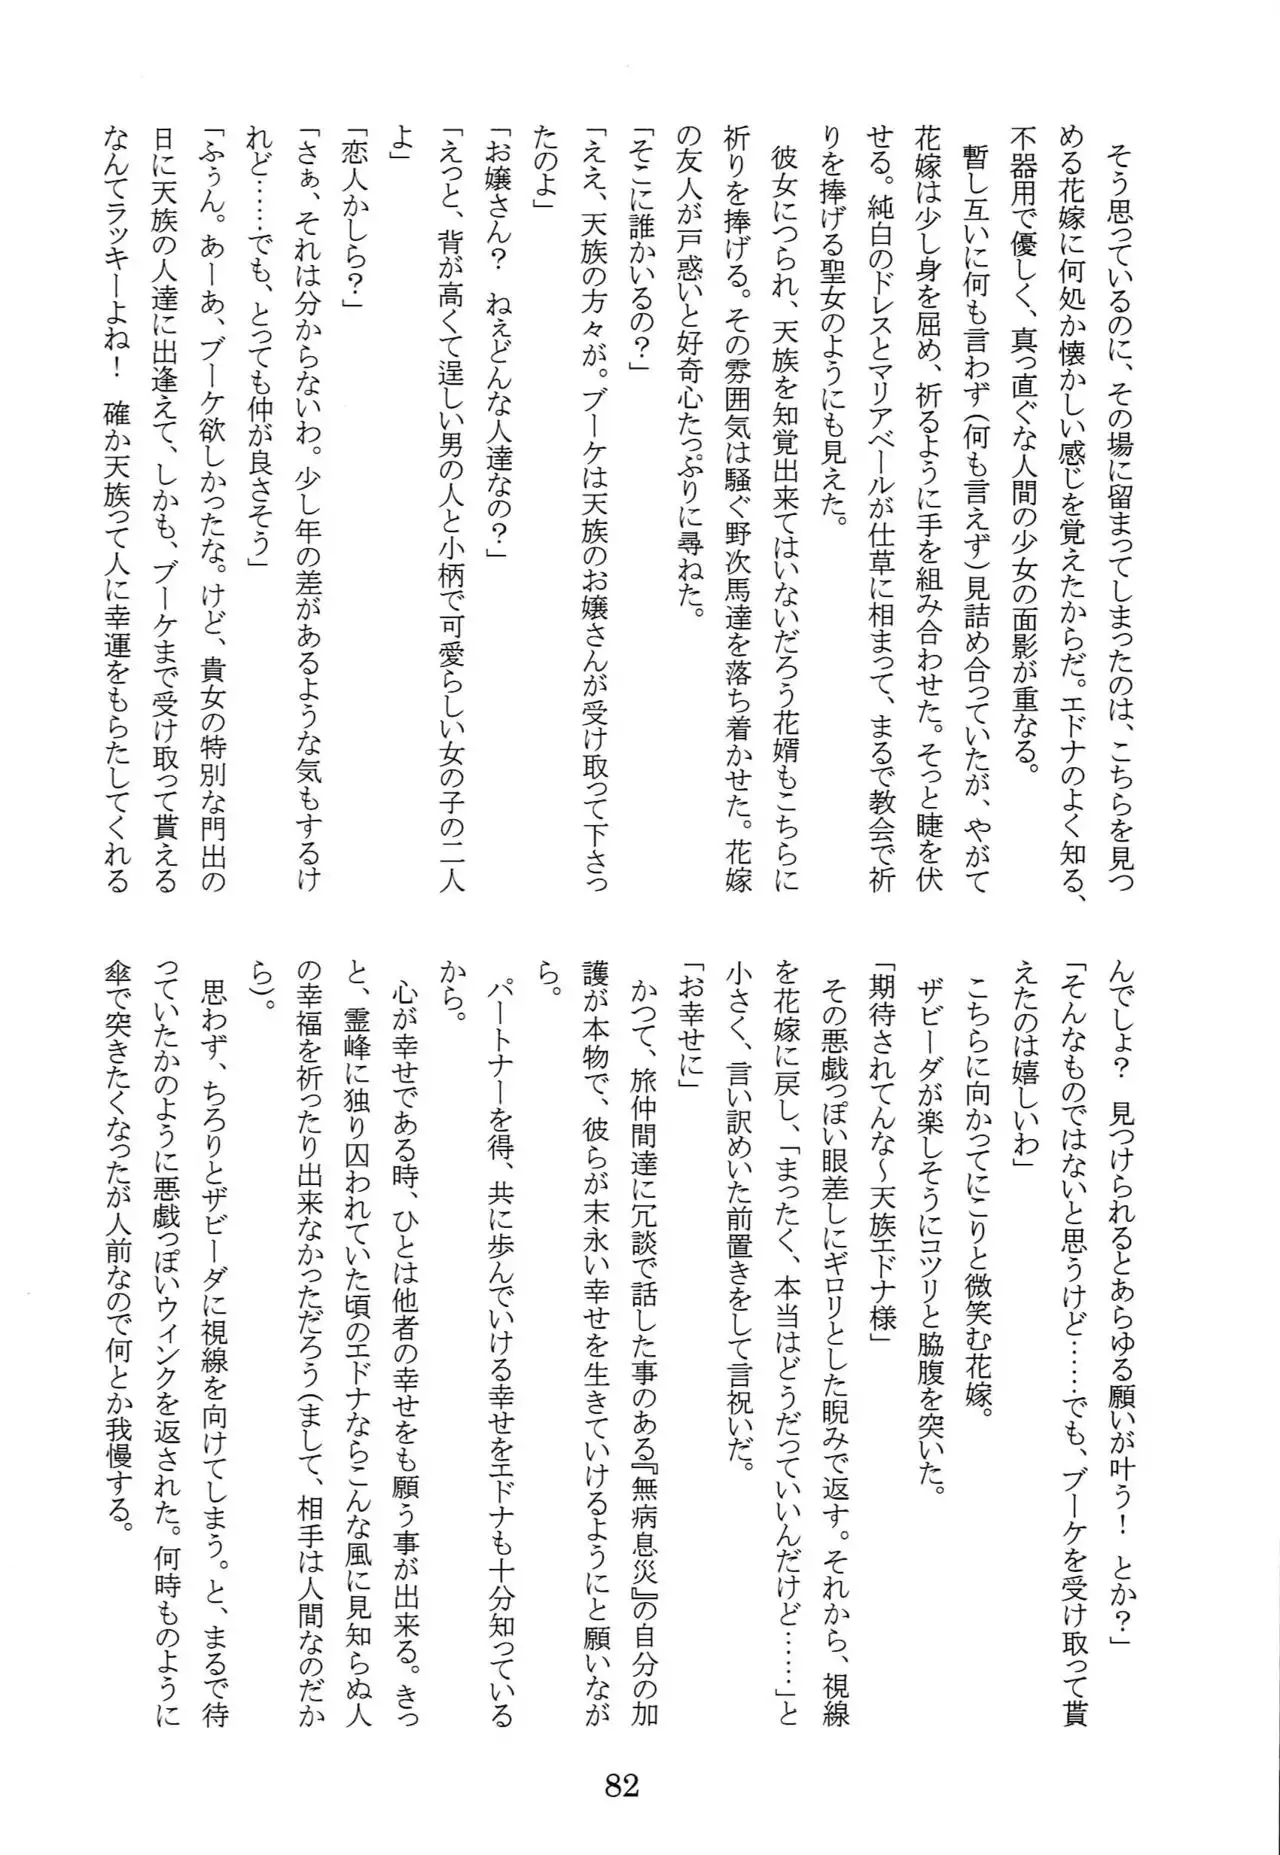 そう思っているのに、その場に留まってしまったのは、こちらを見つ
める花嫁に何処か懐かしい感じを覚えたからだ。エドナのよく知る、
不器用で優しく、真っ直ぐな人間の少女の面影が重なる。
暫し互いに何も言わず（何も言えず）見詰め合っていたが、やがて
花嫁は少し身を屈め、祈るように手を組み合わせた。そっと睫を伏
せる。純白のドレスとマリアベールが仕草に相まって、まるで教会で祈
りを捧げる聖女のようにも見えた。
彼女につられ、天族を知覚出来てはいないだろう花婿もこちらに
祈りを捧げる。その雰囲気は騒ぐ野次馬達を落ち着かせた。花嫁
の友人が戸惑いと好奇心たっぷりに尋ねた。
「そこに誰かいるの？」
「ええ、天族の方々が。ブーケは天族のお嬢さんが受け取って下さっ
たのよ」
「お嬢さん？　ねぇどんな人達なの？」
「えっと、背が高くて逞しい男の人と小柄で可愛らしい女の子の二人
よ」
「恋人かしら？」
「さぁ、それは分からないわ。少し年の差があるような気もするけ
れど……でも、とっても仲が良さそう」
「ふぅん。あーあ、ブーケ欲しかったな。けど、貴女の特別な門出の
日に天族の人達に出逢えて、しかも、ブーケまで受け取って貰える
なんてラッキーよね！　確か天族って人に幸運をもらたしてくれる
んでしょ？　見つけられるとあらゆる願いが叶う！　とか？」
「そんなものではないと思うけど……でも、ブーケを受け取って貰
えたのは嬉しいわ」
こちらに向かってにこりと微笑む花嫁。
ザビーダが楽しそうにコツリと脇腹を突いた。
「期待されてんな～天族エドナ様」
その悪戯っぽい眼差しにギロリとした睨みで返す。それから、視線
を花嫁に戻し、「まったく、本当はどうだっていいんだけど……」と
小さく、言い訳めいた前置きをして言祝いだ。
「お幸せに」
かつて、旅仲間達に冗談で話した事のある『無病息災』の自分の加
護が本物で、彼らが末永い幸せを生きていけるようにと願いなが
ら。
パートナーを得、共に歩んでいける幸せをエドナも十分知っている
から。
心が幸せである時、ひとは他者の幸せをも願う事が出来る。きっ
と、霊峰に独り囚われていた頃のエドナならこんな風に見知らぬ人
の幸福を祈ったり出来なかっただろう（まして、相手は人間なのだか
ら）。
思わず、ちろりとザビーダに視線を向けてしまう。と、まるで待
っていたかのように悪戯っぽいウィンクを返された。何時ものように
傘で突きたくなったが人前なので何とか我慢する。
82